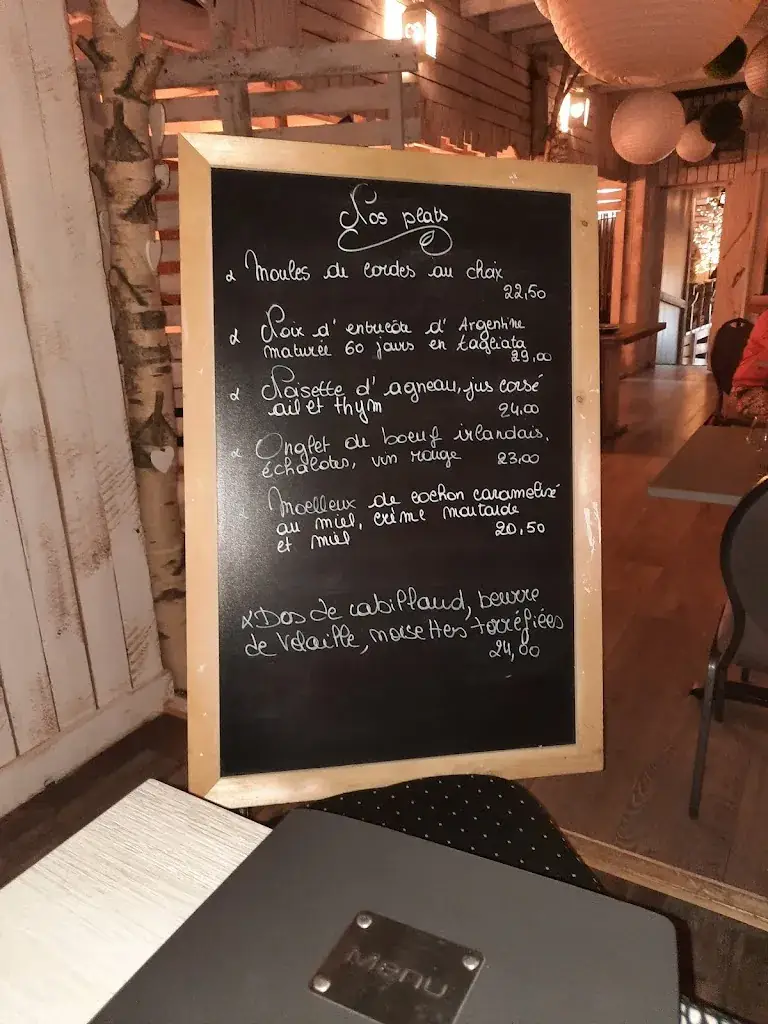 Nos plats
Moules de cordes au choix
22,50
Noix d'entrecôte d'Argentine
maturée 60 jours en tagliata
29,00
Noisette d'agneau, jus corsé
ail et thym
24.00
Onglet de boeuf irlandais,
échalotes, vin rouge 23,00
Moelleux de cochon caramelisé
au miel, crème moutarde
et miel 20,50
Dos de cabillaud, beurre
de volaille, noisettes torréfiées
24,00
Menu